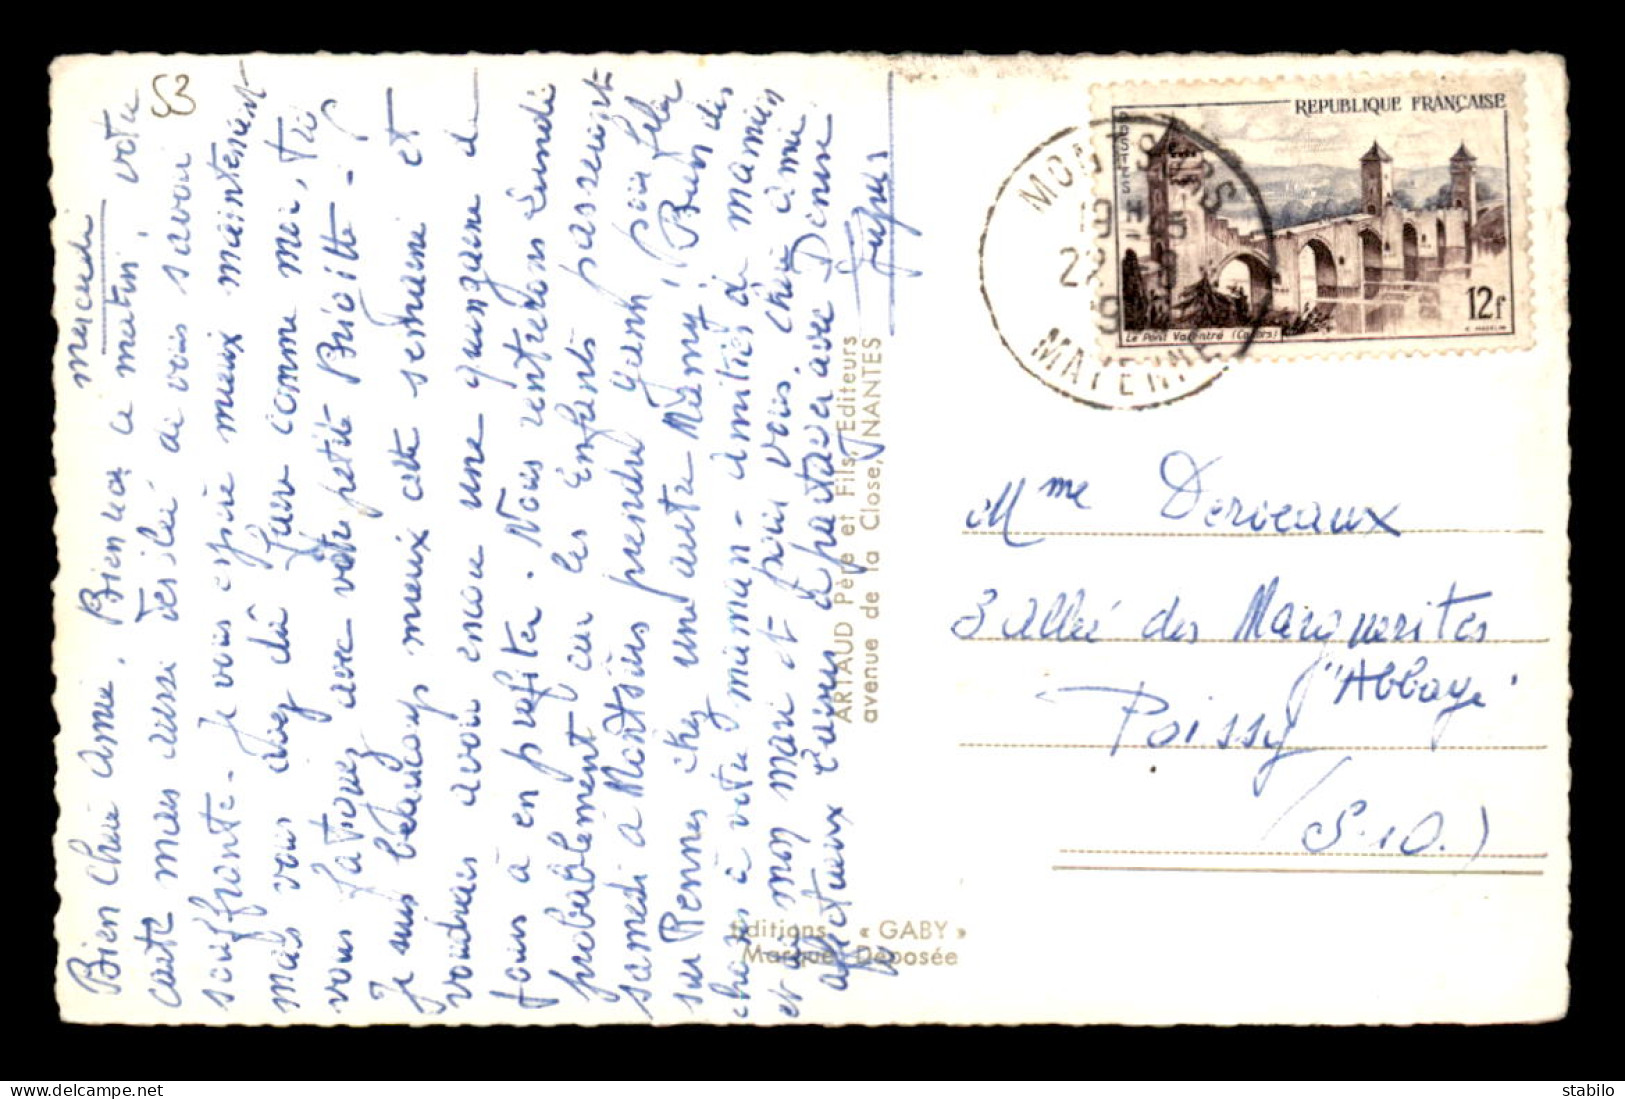 53
mercredi
Bien chère amie. Bien reçu ce matin, votre
carte mais aussi désolée de vous savoir
souffrante - Je vous espère mieux maintenant
mais vous avez dû faire comme moi, trop
vous fatiguer avec votre petite Brigitte - !
Je suis beaucoup mieux cette semaine et
voudrais avoir encore une quinzaine de
jours à en profiter. Nous rentrerons lundi
probablement car les enfants passeront
samedi à Montsûrs prendre Yann pour filer
sur Rennes chez une autre Mamy! Bien des
choses à votre maman - amitiés à mamie
et à mon mari et pour vous, chère amie
affectueux baisers à partager avec Denise
ARTAUD Père et Fils, Editeurs
avenue de la Close, NANTES
Editions « GABY »
Marque Déposée
REPUBLIQUE FRANÇAISE
POSTES
12f
Le Pont Valentré (Cahors)
MONTSURS
MAYENNE
Mme Derveaux
3 allée des Marguerites
"Abbaye"
Poissy
(S.&O.)
stabilo